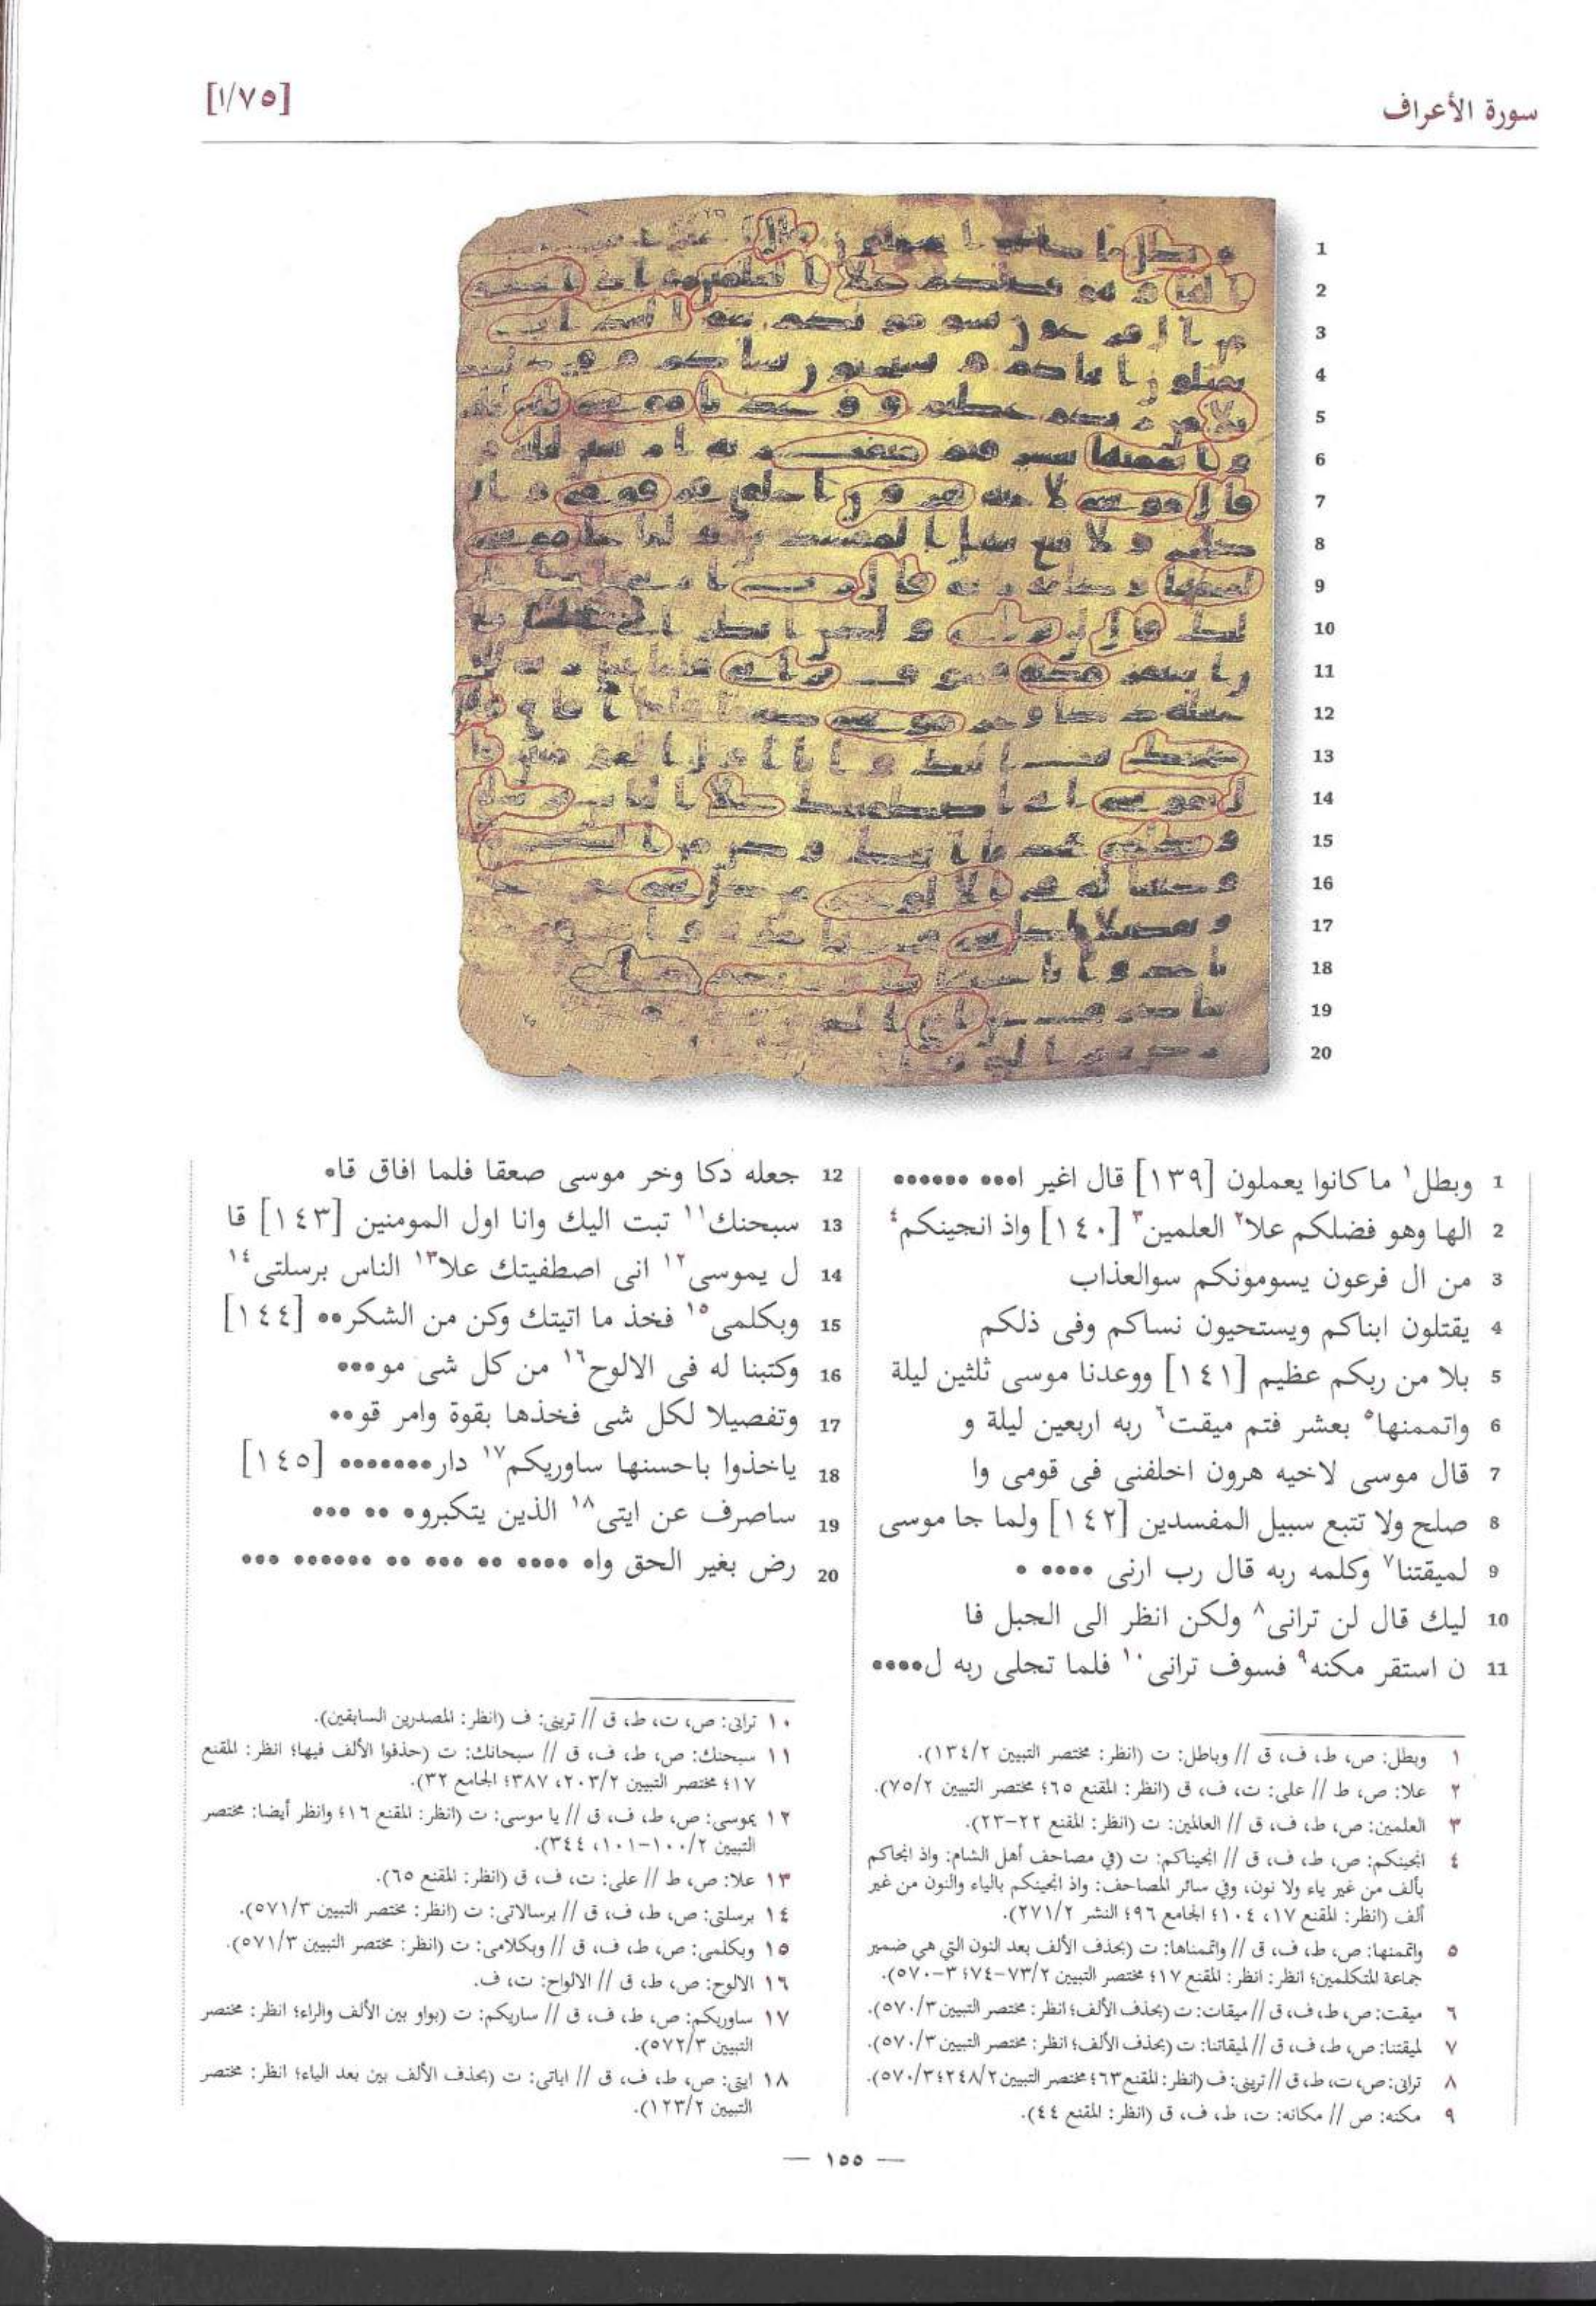 سورة الأعراف
[١/٧٥]
1
2
3
4
5
6
7
8
9
10
11
12
13
14
15
16
17
18
19
20
1 وبطل١ ما كانوا يعملون [١٣٩] قال اغير ا••• ••••••
2 الها وهو فضلكم علا٢ العلمين٣ [١٤٠] واذ انجينكم٤
3 من ال فرعون يسومونكم سوالعذاب
4 يقتلون ابناكم ويستحيون نساكم وفى ذلكم
5 بلا من ربكم عظيم [١٤١] ووعدنا موسى ثلثين ليلة
6 واتممنها٥ بعشر فتم ميقت٦ ربه اربعين ليلة و
7 قال موسى لاخيه هرون اخلفنى فى قومى وا
8 صلح ولا تتبع سبيل المفسدين [١٤٢] ولما جا موسى
9 لميقتنا٧ وكلمه ربه قال رب ارنى •••• •
10 ليك قال لن ترانى٨ ولكن انظر الى الجبل فا
11 ن استقر مكنه٩ فسوف ترانى١٠ فلما تجلى ربه ل••••
12 جعله دكا وخر موسى صعقا فلما افاق قا•
13 سبحنك١١ تبت اليك وانا اول المومنين [١٤٣] قا
14 ل يموسى١٢ انى اصطفيتك علا١٣ الناس برسلتى١٤
15 وبكلمى١٥ فخذ ما اتيتك وكن من الشكر•• [١٤٤]
16 وكتبنا له فى الالوح١٦ من كل شى مو•••
17 وتفصيلا لكل شى فخذها بقوة وامر قو••
18 ياخذوا باحسنها ساوريكم١٧ دار••••••• [١٤٥]
19 ساصرف عن ايتى١٨ الذين يتكبرو• •• •••
20 رض بغير الحق وا• •••• •• ••• •• •••••• •••
١ وبطل: ص، ط، ف، ق // وباطل: ت (انظر: مختصر التبيين ١٣٤/٢).
٢ علا: ص، ط // على: ت، ف، ق (انظر: المقنع ٦٥؛ مختصر التبيين ٧٥/٢).
٣ العلمين: ص، ط، ف، ق // العالمين: ت (انظر: المقنع ٢٢-٢٣).
٤ انجينكم: ص، ط، ف، ق // انجيناكم: ت (في مصاحف أهل الشام: واذ انجاكم
بألف من غير ياء ولا نون، وفي سائر المصاحف: واذ انجينكم بالياء والنون من غير
ألف (انظر: المقنع ١٧، ١٠٤؛ الجامع ٩٦؛ النشر ٢٧١/٢).
٥ واتممنها: ص، ط، ف، ق // واتممناها: ت (بحذف الألف بعد النون التي هي ضمير
جماعة المتكلمين؛ انظر: انظر: المقنع ١٧؛ مختصر التبيين ٧٣/٢-٧٤؛ ٣-٥٧٠).
٦ ميقت: ص، ط، ف، ق // ميقات: ت (بحذف الألف؛ انظر: مختصر التبيين ٥٧٠/٣).
٧ لميقتنا: ص، ط، ف، ق // لميقاتنا: ت (بحذف الألف؛ انظر: مختصر التبيين ٥٧٠/٣).
٨ ترانى: ص، ت، ط، ق // ترينى: ف (انظر: المقنع ٦٣؛ مختصر التبيين ٢٤٨/٢؛ ٥٧٠/٣).
٩ مكنه: ص // مكانه: ت، ط، ف، ق (انظر: المقنع ٤٤).
١٠ ترانى: ص، ت، ط، ق // ترينى: ف (انظر: المصدرين السابقين).
١١ سبحنك: ص، ط، ف، ق // سبحانك: ت (حذفوا الألف فيها؛ انظر: المقنع
١٧؛ مختصر التبيين ٢٠٣/٢، ٣٨٧؛ الجامع ٣٢).
١٢ يموسى: ص، ط، ف، ق // يا موسى: ت (انظر: المقنع ١٦؛ وانظر أيضا: مختصر
التبيين ١٠٠/٢-١٠١، ٣٤٤).
١٣ علا: ص، ط // على: ت، ف، ق (انظر: المقنع ٦٥).
١٤ برسلتى: ص، ط، ف، ق // برسالاتى: ت (انظر: مختصر التبيين ٥٧١/٣).
١٥ وبكلمى: ص، ط، ف، ق // وبكلامى: ت (انظر: مختصر التبيين ٥٧١/٣).
١٦ الالوح: ص، ط، ق // الالواح: ت، ف.
١٧ ساوريكم: ص، ط، ف، ق // ساريكم: ت (بواو بين الألف والراء؛ انظر: مختصر
التبيين ٥٧٢/٣).
١٨ ايتى: ص، ط، ف، ق // اياتى: ت (بحذف الألف بين بعد الياء؛ انظر: مختصر
التبيين ١٢٣/٢).
— ١٥٥ —